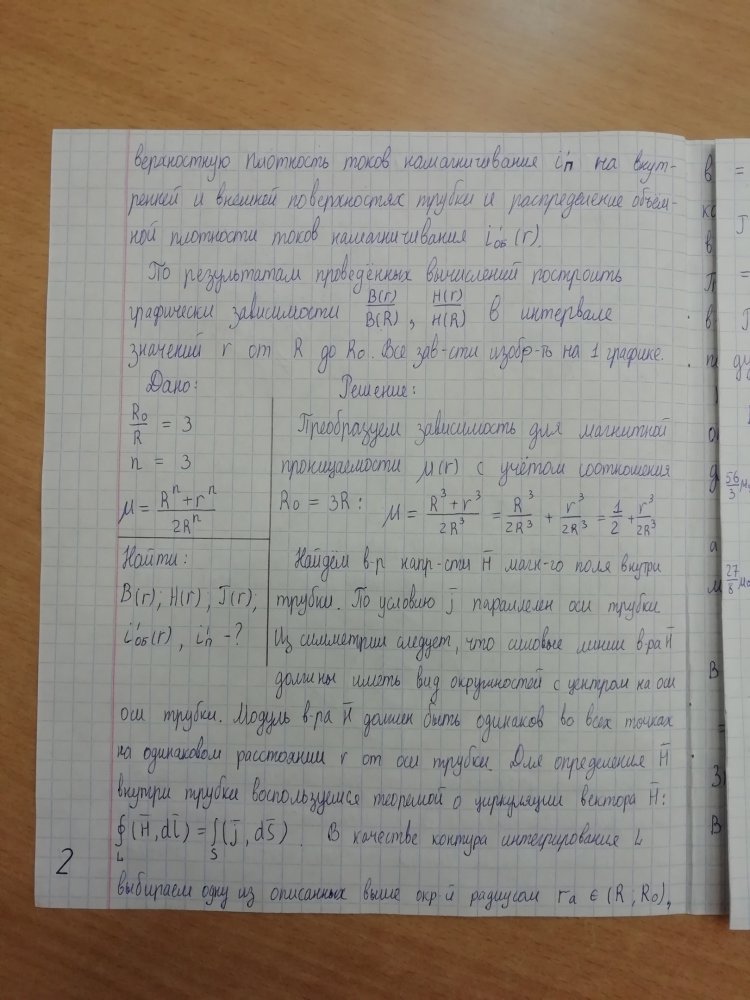 верхностную плотность токов намагничивания i'п на внут-
ренней и внешней поверхностях трубки и распределение объём-
ной плотности токов намагничивания i'об(r).
По результатам проведённых вычислений построить
графически зависимости B(r)/B(R), H(r)/H(R) в интервале
значений r от R до R₀. Все зав-сти изобр-ть на 1 графике.
Дано:
R₀/R = 3
n = 3
μ = (Rⁿ + rⁿ)/2Rⁿ
Найти:
B(r); H(r); J(r);
i'об(r), i'п -?
Решение:
Преобразуем зависимость для магнитной
проницаемости μ(r) с учётом соотношения
R₀ = 3R: μ = (R³ + r³)/2R³ = R³/2R³ + r³/2R³ = 1/2 + r³/2R³
Найдём в-р напр-сти H̄ магн-го поля внутри
трубки. По условию j̄ параллелен оси трубки
Из симметрии следует, что силовые линии в-ра H̄
должны иметь вид окружностей с центром на оси
оси трубки. Модуль в-ра H̄ должен быть одинаков во всех точках
на одинаковом расстоянии r от оси трубки. Для определения H̄
внутри трубки воспользуемся теоремой о циркуляции вектора H̄:
∮_L (H̄, dl̄) = ∫_S (j̄, dS̄). В качестве контура интегрирования L
выбираем одну из описанных выше окр-й радиусом rₐ ∈ (R; R₀),
2
в
=
в
=
в
56/3
а
27/8
в
=
В